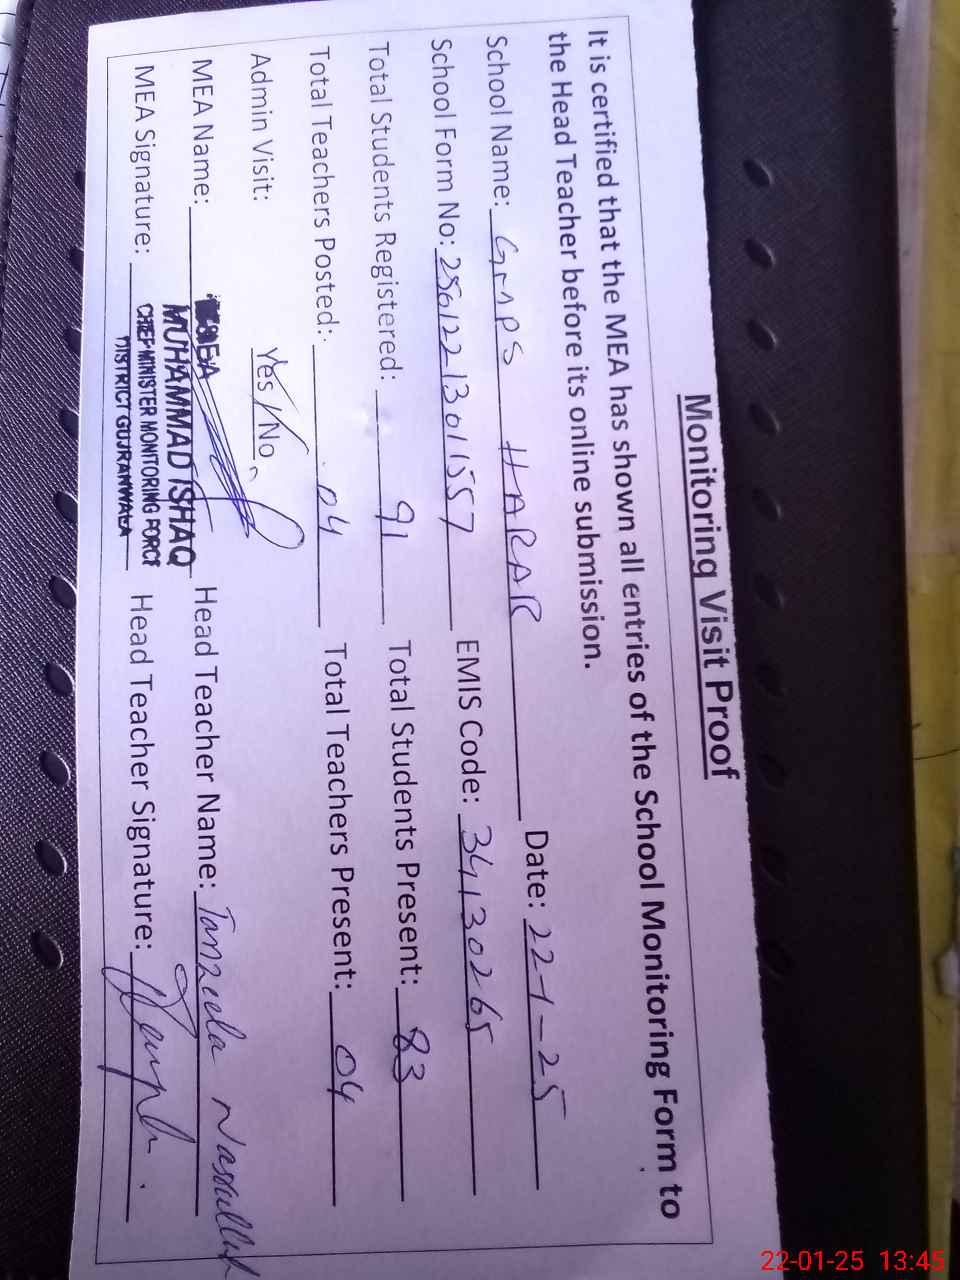 Monitoring Visit Proof
It is certified that the MEA has shown all entries of the School Monitoring Form to
the Head Teacher before its online submission.
School Name: GMPS HARAR Date: 22-1-25
School Form No: EMIS Code: 34130265
Total Students Registered: 91 Total Students Present: 83
Total Teachers Posted: 04 Total Teachers Present: 04
Admin Visit: Yes/No
MEA Name: MEA Head Teacher Name: Tanzeela
MUHAMMAD ISHAQ
MEA Signature: Head Teacher Signature:
CHIEF MINISTER MONITORING FORCE
DISTRICT GUJRANWALA
22-01-25 13:45